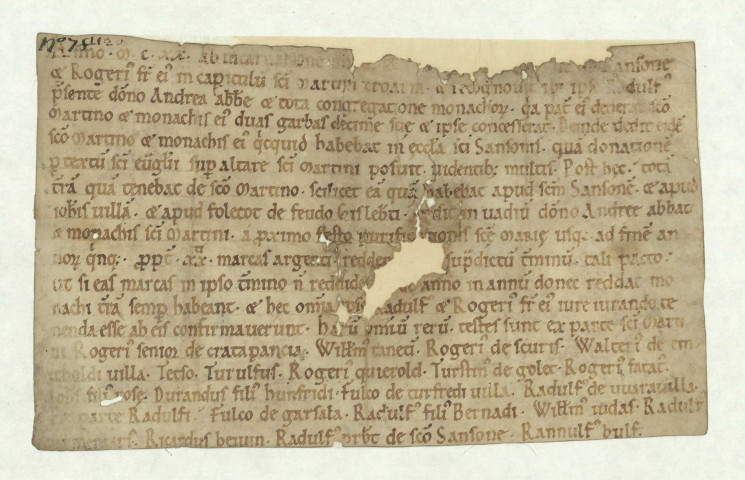 Nº 75
Anno · M · C · XX · ab incarnatione Sansone
⁊ Rogeri᷒ fr̄ ei᷒ in capitulū sc̄i Martini · ⁊ ibi ipse Radulf᷒
p̄sente dōno Andrea abb̄e ⁊ tota congregatione monachoꝝ · q̄a pat̄ ei᷒ dederat sc̄o
Martino ⁊ monachis ei᷒ duas garbas decime sue ⁊ ipse concesserat · Deinde dedit eidē
sc̄o Martino ⁊ monachis ei᷒ q̄cquid habebat in eccl̄a sc̄i Sansonis · quā donationē
p̄ textū sc̄i euḡlii sup̄ altare sc̄i Martini posuit uidentib; multis · Post hec · totā
t̄rā quā tenebat de sc̄o Martino · scilicet eā quā habebat apud sc̄m Sansonē · ⁊ apud
ioh̄is uillā · ⁊ apud folecot de feudo Gisleb̄ti · in uadiū dōno Andree abbati
⁊ monachis sc̄i Martini · a proximo festo purificationis sc̄e Marie usq; ad finē an
noꝝ q̄nq; · ꝓpt̄ · xx · marcas argenti redder sup̄dictū t̄minū · tali pacto ·
ut si eas marcas in ipso t̄mino n̄ reddide anno in annū donec reddat mo
nachi t̄rā semp̄ habeant · ⁊ hec omnia Radulf᷒ ⁊ Rogeri᷒ fr̄ ei᷒ iure iurando te
nenda esse ab eis confirmauerunt · harū omniū rerū · testes sunt ex parte sc̄i Marti
ni Rogeri᷒ senior de cratapancia · Willm᷒ taneti · Rogeri᷒ de scuris · Walteri᷒ de
boldi uilla · Tecso · Turulfus · Rogeri᷒ quierold · Turstin᷒ de golet · Rogeri᷒
Durandus fili᷒ hunfridi · Fulco de turfredi uilla · Radulf᷒ de uuarauilla ·
Ex parte Radulfi · Fulco de garsala · Radulf᷒ fili᷒ Bernadi · Willm᷒ iudas · Radulf᷒
Ricardus beiuin · Radulf᷒ p̄rbt̄ de sc̄o Sansone · Rannulf᷒ bulf᷒ ·